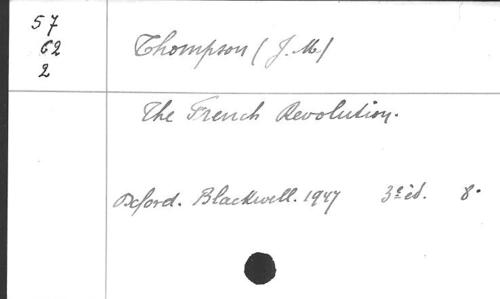 57
62
2
Thompson (J. M.)
The French Revolution.
Oxford. Blackwell. 1947 3e éd. 8°